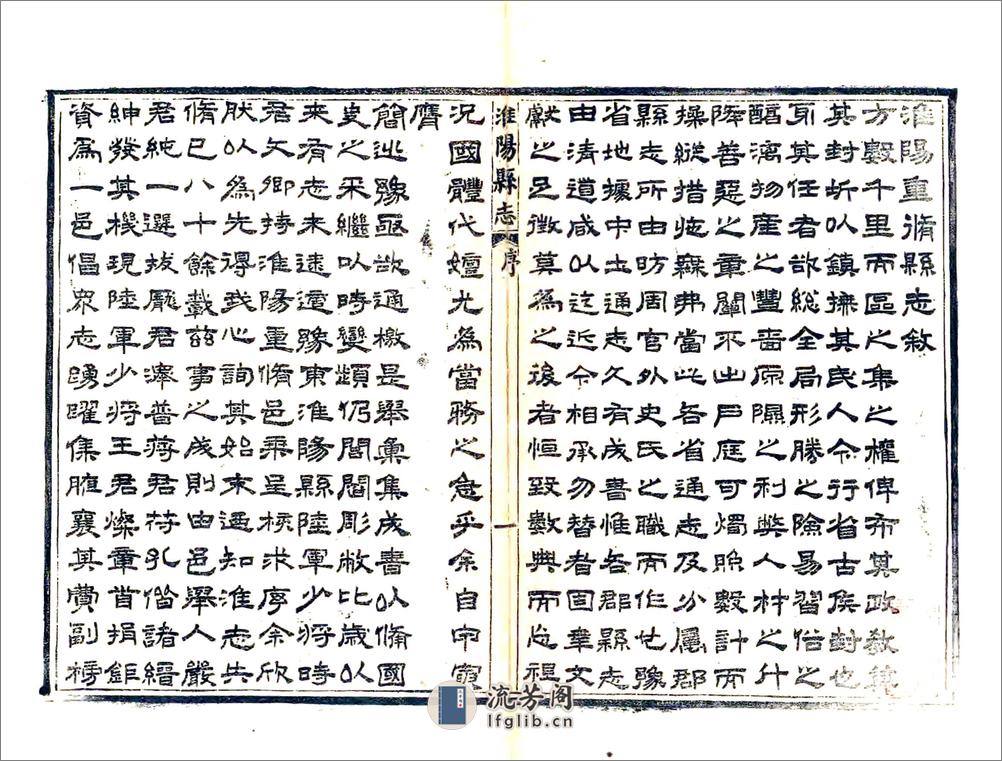 淮陽重脩縣志敘
方數千里而區之集之權俾布其政教範
其封圻以鎮撫其民人令行省古侯封也
身其任者欲總全局形勝之險易習俗之
醇漓物產之豐嗇原隰之利獘人材之升
降善惡之彰闡不出戶庭可燭照數計而
操縱措施無弗當此各省通志及分屬郡
縣志所由昉周官外史氏之職而作也豫
省地擴中土通志久有成書惟各郡縣志
由清道咸以迄近今相承勿替者固章文
獻之足徵莫爲之後者恒致數典而忘祖
淮陽縣志 序 一
況國體代嬗尤爲當務之急乎余自甲
膺
簡巡豫亟欲通檄是舉彙集成書以備國
史之采繼以時變頻仍閭閻彫敝比歲以
来有志未逮適豫東淮陽縣陸軍少將時
君文卿持淮陽重脩邑乘呈核求序余欣
肰以爲先得我心詢其始末迺知淮志失
脩已八十餘載茲事之成則由邑舉人嚴
君純一選拔龐君濟普蒋君符孔偕諸縉
紳發其機現陸軍少將王君燦章首捐鉅
資爲一邑倡眾志踴躍集脽襄其費副榜
流芳阁
lfglib.cn